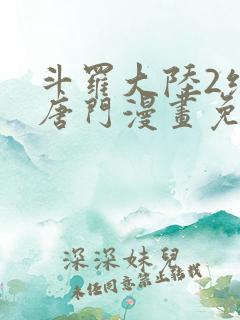 斗羅大陸2
唐門漫畫免
深深妹兒
未經同意禁止轉載